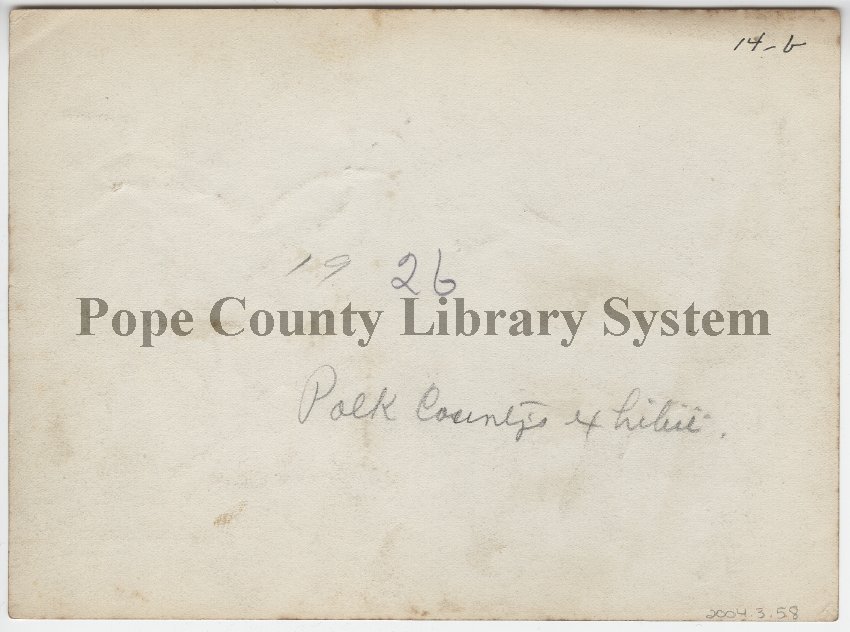 14-b
19 26
Pope County Library System
Polk County's exhibit.
2004.3.58